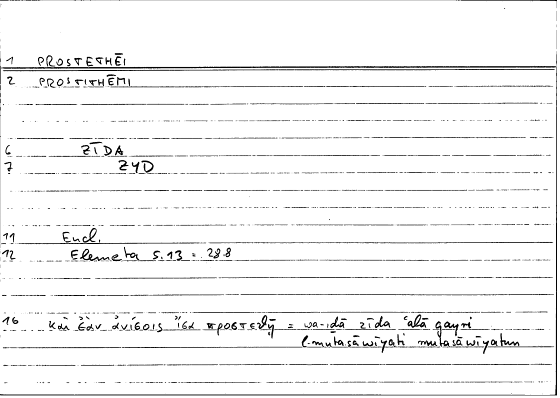 1 PROSTETHĒI
2 PROSTITHĒMI
6 ZĪDA
7 ZYD
11 Eucl.
12 Elementa 5.13 : 288
16 καὶ ἐὰν ἀνίσοις ἴσα προστεθῇ = wa-iḏā zīda ʿalā ġayri
l-mutasāwīyati mutasāwīyatun